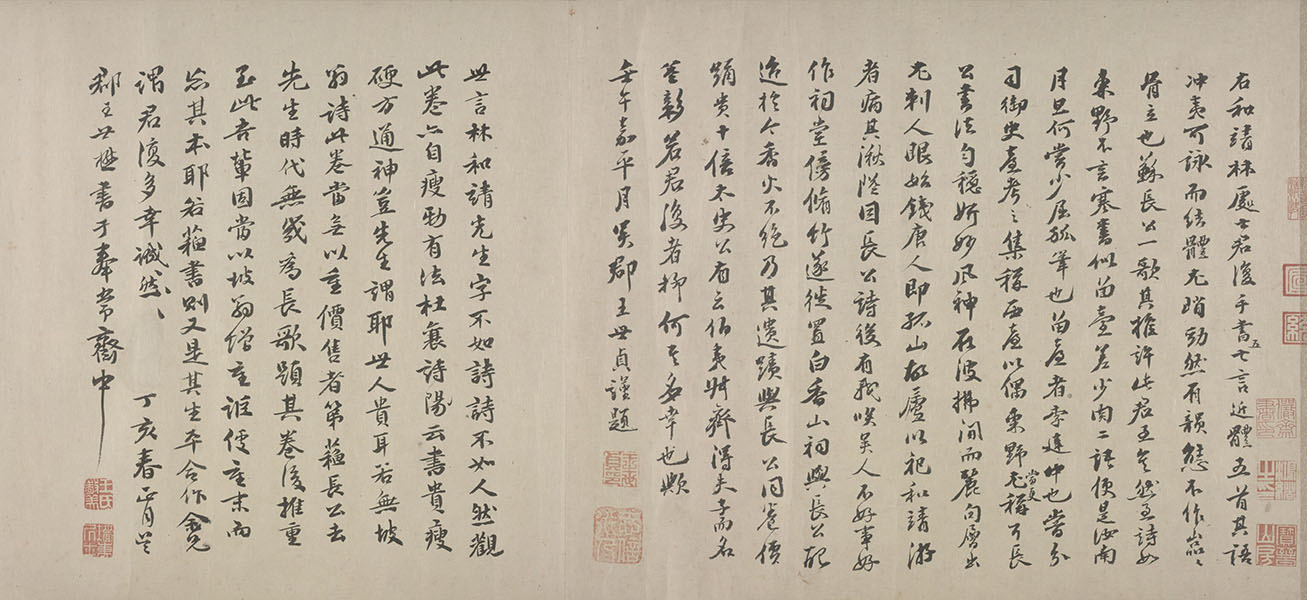 右和靖林處士君復手書五七言近體五首其語
冲夷可詠而結體尤峭勁然有韻態不作嵓嵓
骨立也蘇長公一歌其推許此君至矣然至詩如
東野不言寒書似留臺差少肉二語便是汝南
月旦何嘗少屈狐筆也留臺者李建中也嘗分
司御史臺考之集稱西臺以偶東野尤稱當更可長
公書法勻穩妍妙風神在波拂間而麗句層出
尤刺人眼始錢唐人即孤山故廬以祀和靖游
者病其湫隘因長公詩後有我咲吴人不好事好
作祠堂傍脩竹遂徙置白香山祠與長公配
迄於今香火不絶乃其遺蹟與長公同卷價
踊貴十倍太史公有云伯夷叔齊得夫子而名
益彰若君復者抑何其多幸也歟
壬午嘉平月吴郡王世貞謹題
世言林和靖先生字不如詩詩不如人然觀
此卷亦自瘦勁有法杜襄詩陽云書貴瘦
硬方通神豈先生謂耶世人貴耳若無坡
翁詩此卷當無以重價售者第蘓長公去
先生時代無幾為長歌題其卷後推重
至此吾輩因當以坡翁增重詎侄重末而
忘其本耶若蘓書則又是其生平合作家兄
謂君復多幸誠然誠然 丁亥春正月吴
郡王世懋書于奉常齋中